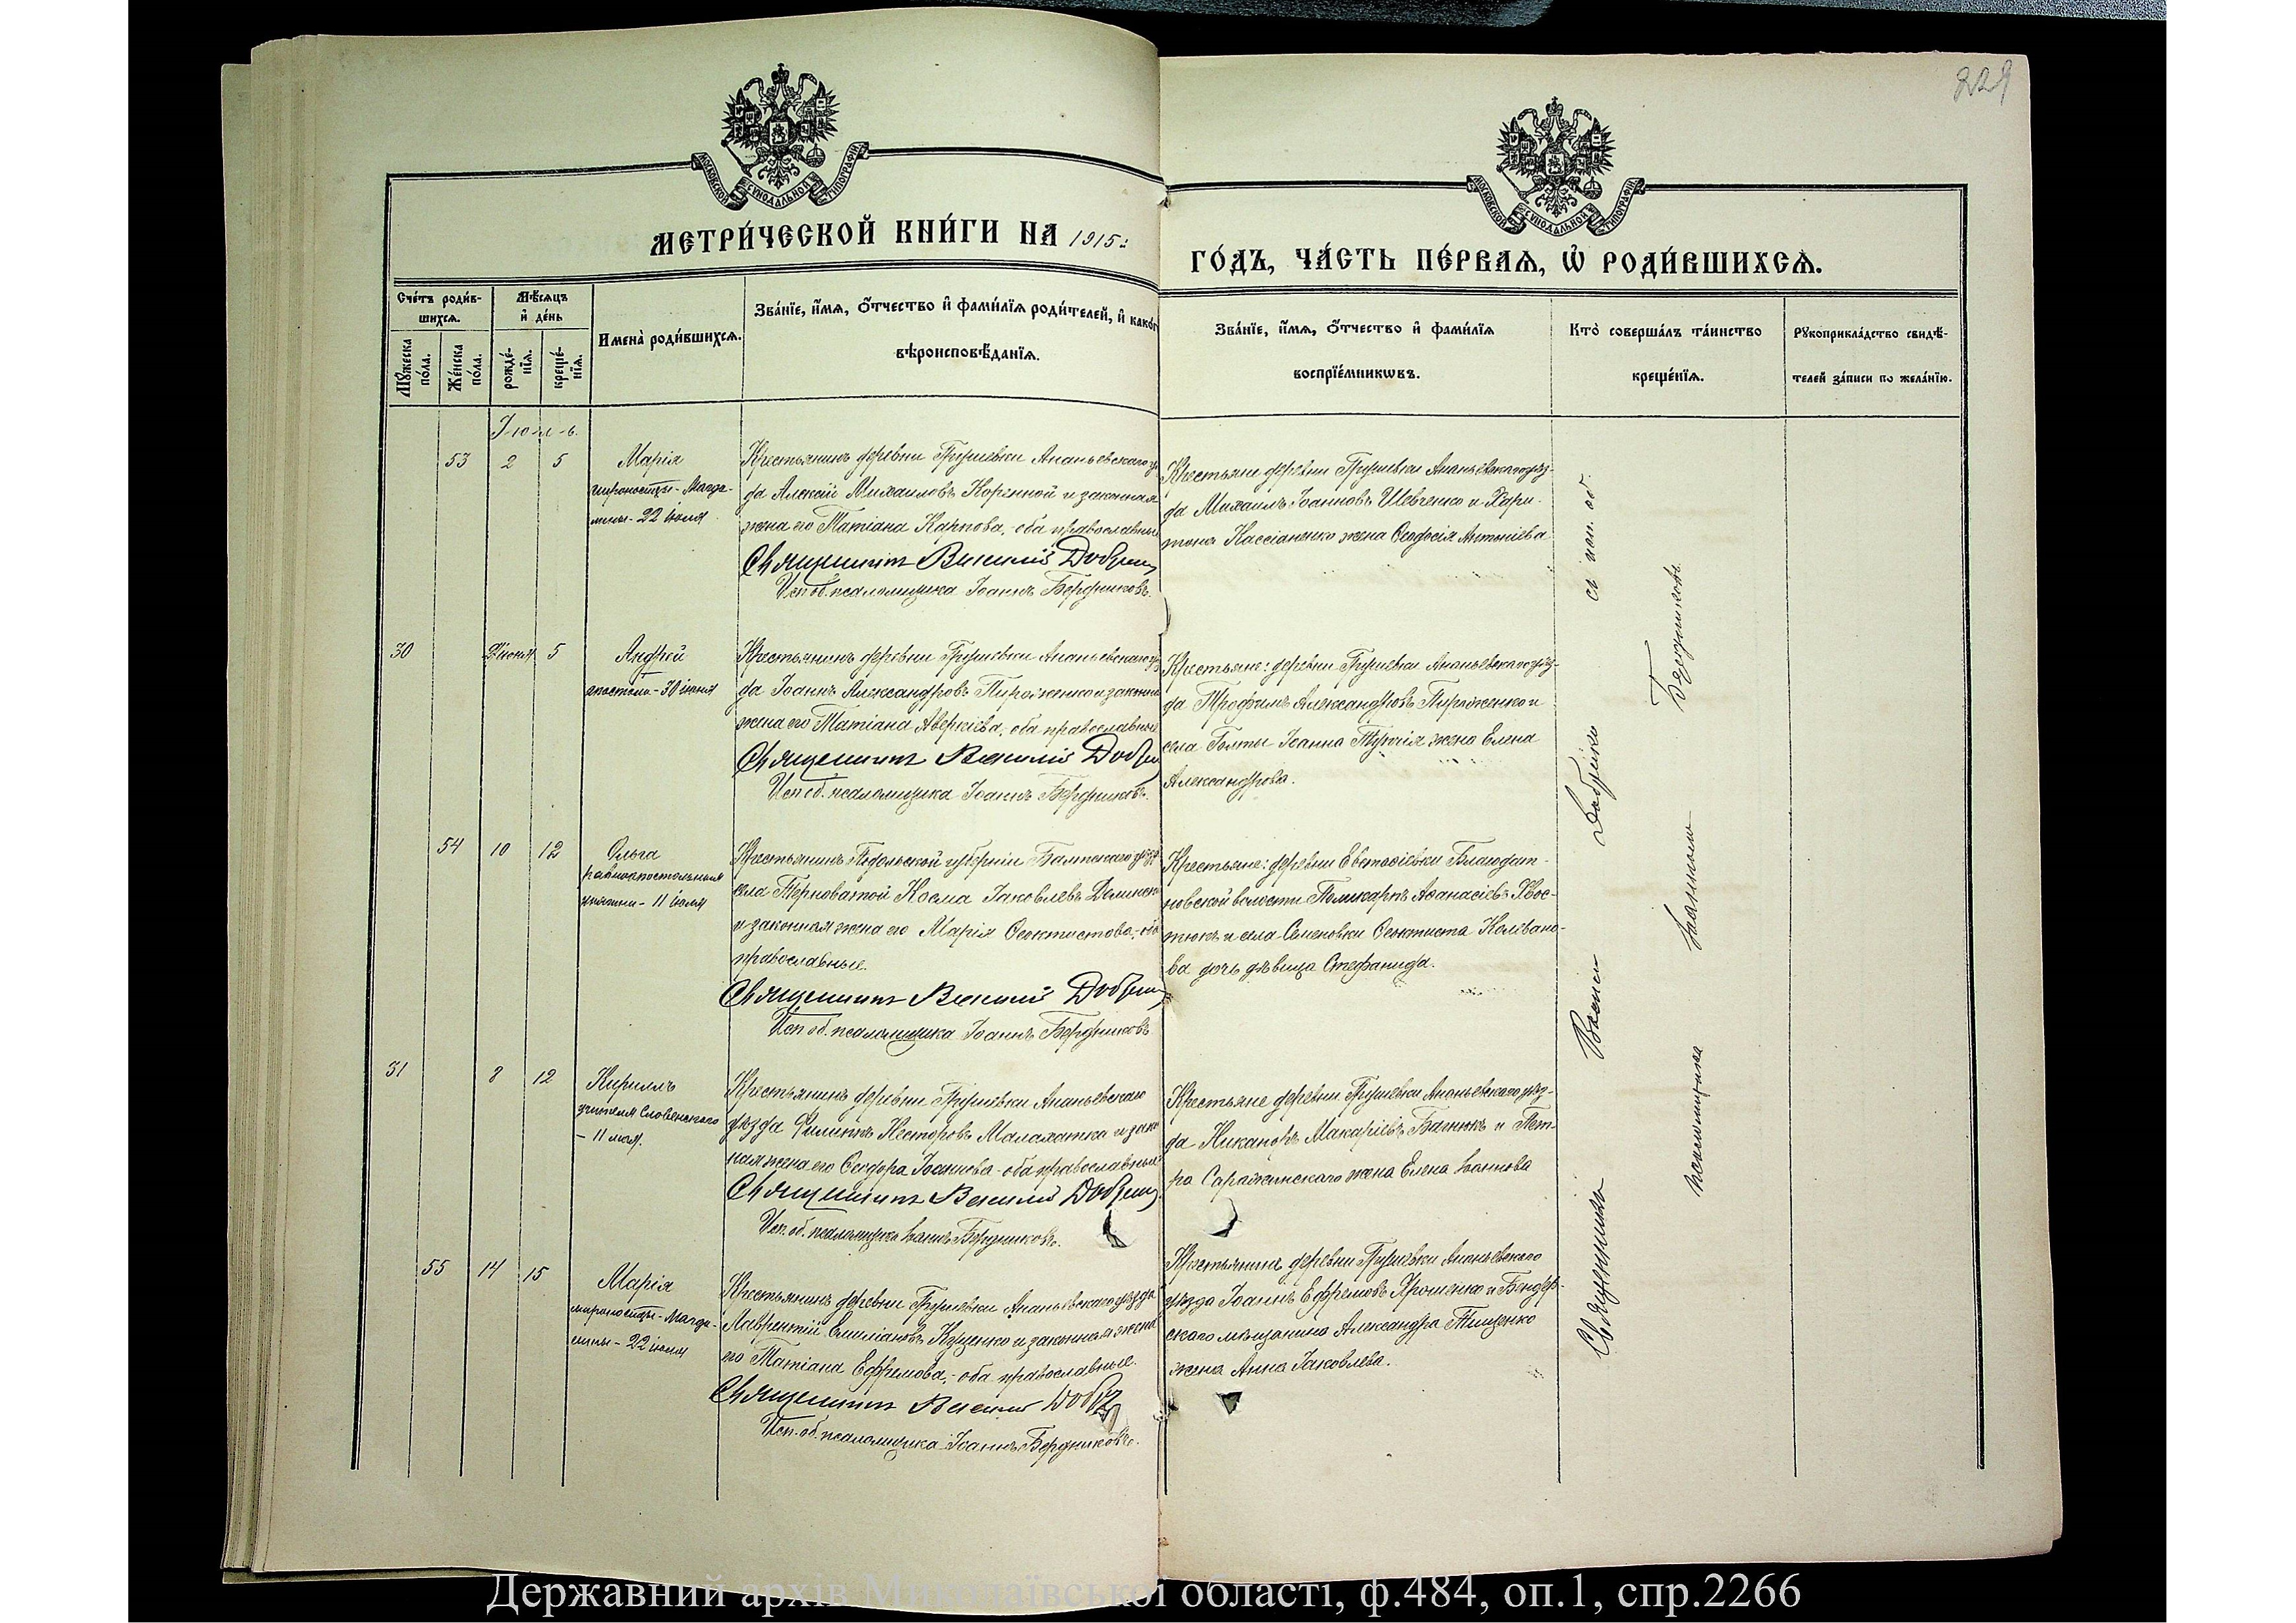 229
МОСКОВСКОЙ СѴНОДАЛЬНОЙ ТИПОГРАФІИ
МОСКОВСКОЙ СѴНОДАЛЬНОЙ ТИПОГРАФІИ
МЕТРИ́ЧЕСКОЙ КНИ́ГИ НА 1915:
ГО́ДЪ, ЧА́СТЬ ПЕ́РВАѦ, Ѡ҆ РОДИ́ВШИХСѦ.
Сче́тъ роди́в-
шихсѧ.
Мꙋ́жеска по́ла.
Же́нска по́ла.
Мѣ́сѧцъ
и҆ де́нь
рожде́-
нїѧ.
креще́-
нїѧ.
И҆мена̀ роди́вшихсѧ.
Зва́нїе, и҆́мѧ, ѻ҆́тчество и҆ фами́лїѧ роди́телей, и҆ како́гѡ
вѣроисповѣ́данїѧ.
Зва́нїе, и҆́мѧ, ѻ҆́тчество и҆ фами́лїѧ
воспрїе́мникѡвъ.
Кто̀ соверша́лъ та́инство
креще́нїѧ.
Рꙋкоприкла́дство свидѣ́-
телей за́писи по жела́нїю.
Іюль.
53 2 5
Марія
мѵроносицы - Магда-
лины - 22 іюля
Крестьянинъ деревни Грушевки Ананьевскаго уѣз
да Алексій Михаиловъ Коренной и законная
жена его Татіана Карпова, - оба православные
Священникъ Василій
Исп. об. псаломщика Іоаннъ Бердниковъ.
Крестьяне деревни Грушевки Ананьевскаго уѣз-
да Михаилъ Іоанновъ Шевченко и Хари-
тона Кассіаненко жена Ѳеодосія Антоніева
30 іюня 5
Андрей
апостола - 30 іюня
Крестьянинъ деревни Грушевки Ананьевскаго уѣз
да Іоаннъ Александровъ Пироженко и законная
жена его Татіана Аверкіева, оба православные
Священникъ Василій
Исп. об. псаломщика Іоаннъ Бердниковъ.
Крестьяне: деревни Грушевки Ананьевскаго уѣз-
да Трофимъ Александровъ Пироженко и
села Голты Іоанна жена Елена
Александрова.
54 10 12
Ольга
равноапостольныя
княгини - 11 іюля
Крестьянинъ Подольской губерніи Балтскаго уѣзда
села Терноватой Косма Іаковлевъ
и законная жена его Марія Ѳеоктистова, - оба
православные.
Священникъ Василій
Исп. об. псаломщика Іоаннъ Бердниковъ
Крестьяне: деревни Евстафіевки Благодат-
новской волости Поликарпъ Аѳанасіевъ Хвос-
тюкъ и села Семеновки Ѳеоктиста
ва дочь дѣвица Стефанида.
31 8 12
Кириллъ
учителя Словенскаго
- 11 мая.
Крестьянинъ деревни Грушевки Ананьевскаго
уѣзда Филиппъ Несторовъ Маламатка и закон
ная жена его Ѳеодора Іоаннова - оба православные
Священникъ Василій
Исп. об. псаломщика Іоаннъ Бердниковъ.
Крестьяне деревни Грушевки Ананьевскаго уѣз-
да Никаноръ Макаріевъ Багнюкъ и Пет-
ра Саражинскаго жена Елена Іоаннова
55 14 15
Марія
мѵроносицы - Магда-
лины - 22 іюля
Крестьянинъ деревни Грушевки Ананьевскаго уѣзда
Лаврентій Емиліановъ Куценко и законная жена
его Татіана Ефремова, - оба православные.
Священникъ Василій
Исп. об. псаломщика Іоаннъ Бердниковъ.
Крестьянинъ деревни Грушевки Ананьевскаго
уѣзда Іоаннъ Ефремовъ Ярошенко и Бендер-
скаго мѣщанина Александра Тищенко
жена Анна Іаковлева.
Священникъ Василій съ исп. об.
псаломщика Іоанномъ Бердниковъ
Державний архів Миколаївської області, ф.484, оп.1, спр.2266